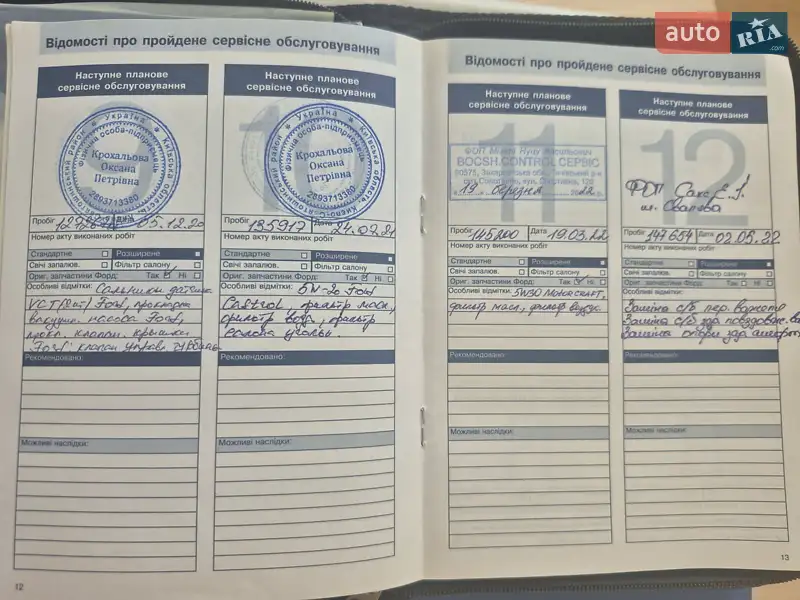 auto RIA .com
Відомості про пройдене сервісне обслуговування
Наступне планове
сервісне обслуговування
Україна
фізична особа-підприємець
Крохальова
Оксана
Петрівна
2893713360
Пробіг Дата 05.12.20
Номер акту виконаних робіт
Стандартне Розширене
Свічі запалюв. Фільтр салону
Ориг. запчастини Форд: Так Ні
Особливі відмітки: Сальники датчика
VCT (2шт) Ford, прокладка
вакуумн. насоса Ford,
прокл. клапан. крышки
Ford клапан управл. турбины
Рекомендовано:
Можливі наслідки:
12
Наступне планове
сервісне обслуговування
Україна
фізична особа-підприємець
Крохальова
Оксана
Петрівна
2893713360
Пробіг 135917 Дата 24.07.21
Номер акту виконаних робіт
Стандартне Розширене
Свічі запалюв. Фільтр салону
Ориг. запчастини Форд: Так Ні
Особливі відмітки: 5W-20 Ford
Castrol, фильтр масл,
фильтр возд, фильтр
салона уголн.
Рекомендовано:
Можливі наслідки:
Відомості про пройдене сервісне обслуговування
11
Наступне планове
сервісне обслуговування
BOCSH.CONTROL СЕРВІС
19 березня 2022
Пробіг 145200 Дата 19.03.22
Номер акту виконаних робіт
Стандартне Розширене
Свічі запалюв. Фільтр салону
Ориг. запчастини Форд: Так Ні
Особливі відмітки: 5W30 MOTORCRAFT,
фильтр масл, фильтр воздух
Рекомендовано:
Можливі наслідки:
12
Наступне планове
сервісне обслуговування
ФОП Сакс Е.
Пробіг 147654 Дата 02.05.22
Номер акту виконаних робіт
Стандартне Розширене
Свічі запалюв. Фільтр салону
Ориг. запчастини Форд: Так Ні
Особливі відмітки:
Заміна с/б пер. важеля
Заміна с/б зад.
Заміна опори зад аморт
Рекомендовано:
Можливі наслідки:
13